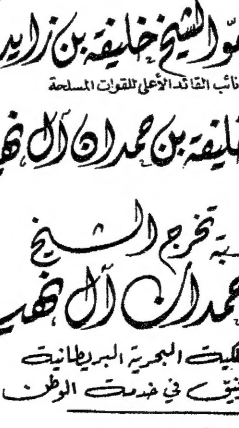 الشيخ خليفة بن زايد
نائب القائد الأعلى للقوات المسلحة
خليفة بن حمدان آل
تخرج الشيخ
حمدان آل
البحرية البريطانية
في خدمة الوطن